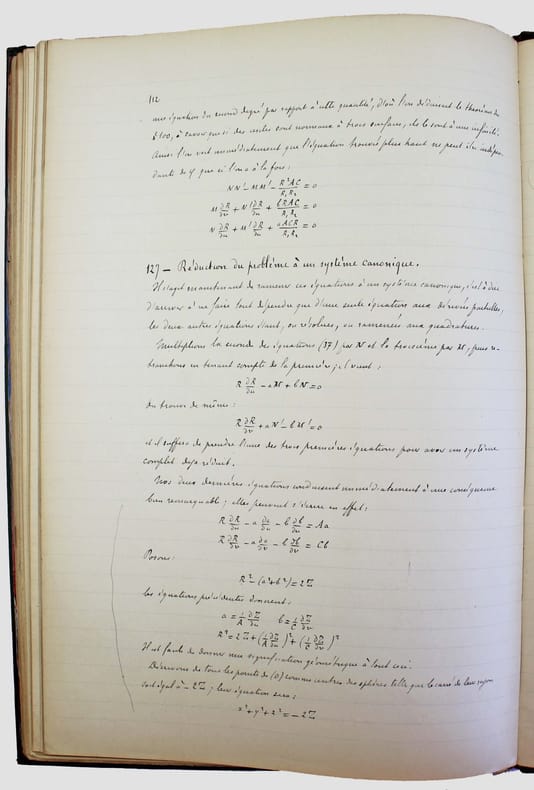 112
une équation du second degré par rapport à cette quantité, d'où l'on déduirait le théorème du
§100, à savoir que si des cercles sont normaux à trois surfaces, ils le sont à une infinité.
Aussi l'on voit immédiatement que l'équation trouvée plus haut ne peut être indépen-
dante de φ que si l'on a à la fois :
NN' - MM' - R²AC/R₁R₂ = 0
M ∂R/∂v + N' ∂R/∂u + bRAC/R₁R₂ = 0
N ∂R/∂v + M' ∂R/∂u + aACR/R₁R₂ = 0
127 — Réduction du problème à un système canonique.
Il s'agit maintenant de ramener ces équations à un système canonique, c'est à dire
d'arriver à ne faire tout dépendre que d'une seule équation aux dérivées partielles,
les deux autres équations étant, ou résolues, ou ramenées aux quadratures.
Multiplions la seconde des équations (37) par N et la troisième par M, puis re-
tranchons en tenant compte de la première ; il vient :
R ∂R/∂u - aM + bN = 0
on trouve de même :
R ∂R/∂v + aN' - bM' = 0
et il suffira de prendre l'une des trois premières équations pour avoir un système
complet déjà réduit.
Nos deux dernières équations conduisent immédiatement à une conséquence
bien remarquable ; elles peuvent s'écrire en effet :
R ∂R/∂u - a ∂a/∂u - b ∂b/∂u = Aa
R ∂R/∂v - a ∂a/∂v - b ∂b/∂v = Cb
Posons :
R² - (a² + b²) = 2Z
les équations précédentes donnent :
a = 1/A ∂Z/∂u b = 1/C ∂Z/∂v
R² = 2Z + (1/A ∂Z/∂u)² + (1/C ∂Z/∂v)²
Il est facile de donner une signification géométrique à tout ceci.
Décrivons de tous les points de (O) comme centres des sphères telles que le carré de leur rayon
soit égal à - 2Z ; leur équation sera :
x² + y² + z² = - 2Z